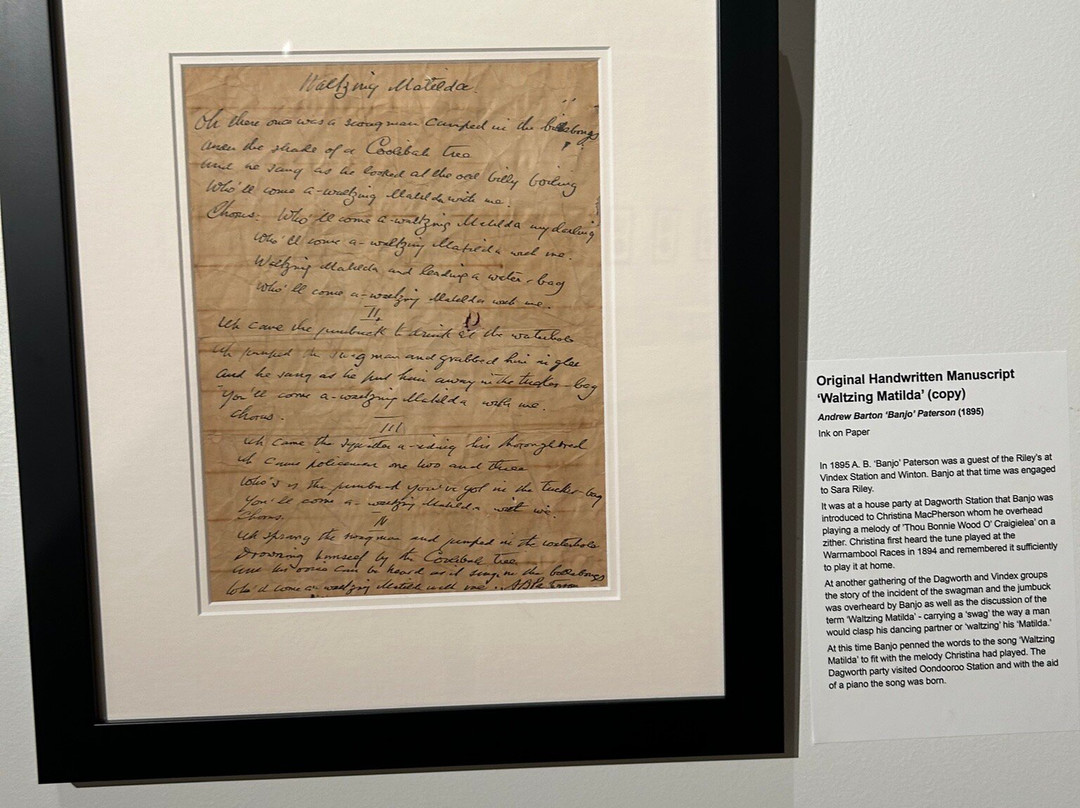 Waltzing Matilda.
Oh there once was a swagman camped in the billabongs
Under the shade of a Coolibah tree
And he sang as he looked at the old billy boiling
Who'll come a-waltzing Matilda with me.
Chorus. Who'll come a-waltzing Matilda my darling
Who'll come a-waltzing Matilda with me.
Waltzing Matilda and leading a water-bag
Who'll come a-waltzing Matilda with me.
II.
Up came the jumbuck to drink at the waterhole
Up jumped the swagman and grabbed him in glee
And he sang as he put him away in the tucker-bag
You'll come a-waltzing Matilda with me.
Chorus.
III
Up came the squatter a-riding his thoroughbred
Up came policemen one two and three
Who's is the jumbuck you've got in the tucker-bag
You'll come a-waltzing Matilda with we.
Chorus.
IV.
Up sprang the swagman and jumped in the waterhole
Drowning himself by the Coolibah tree
And his voice can be heard as it sings in the billabongs
Who'll come a-waltzing Matilda with me.
Original Handwritten Manuscript
‘Waltzing Matilda’ (copy)
Andrew Barton ‘Banjo’ Paterson (1895)
Ink on Paper
In 1895 A. B. ‘Banjo’ Paterson was a guest of the Riley's at
Vindex Station and Winton. Banjo at that time was engaged
to Sara Riley.
It was at a house party at Dagworth Station that Banjo was
introduced to Christina MacPherson whom he overhead
playing a melody of ‘Thou Bonnie Wood O’ Craigielea’ on a
zither. Christina first heard the tune played at the
Warrnambool Races in 1894 and remembered it sufficiently
to play it at home.
At another gathering of the Dagworth and Vindex groups
the story of the incident of the swagman and the jumbuck
was overheard by Banjo as well as the discussion of the
term ‘Waltzing Matilda’ - carrying a ‘swag’ the way a man
would clasp his dancing partner or ‘waltzing’ his ‘Matilda.’
At this time Banjo penned the words to the song ‘Waltzing
Matilda’ to fit with the melody Christina had played. The
Dagworth party visited Oondooroo Station and with the aid
of a piano the song was born.